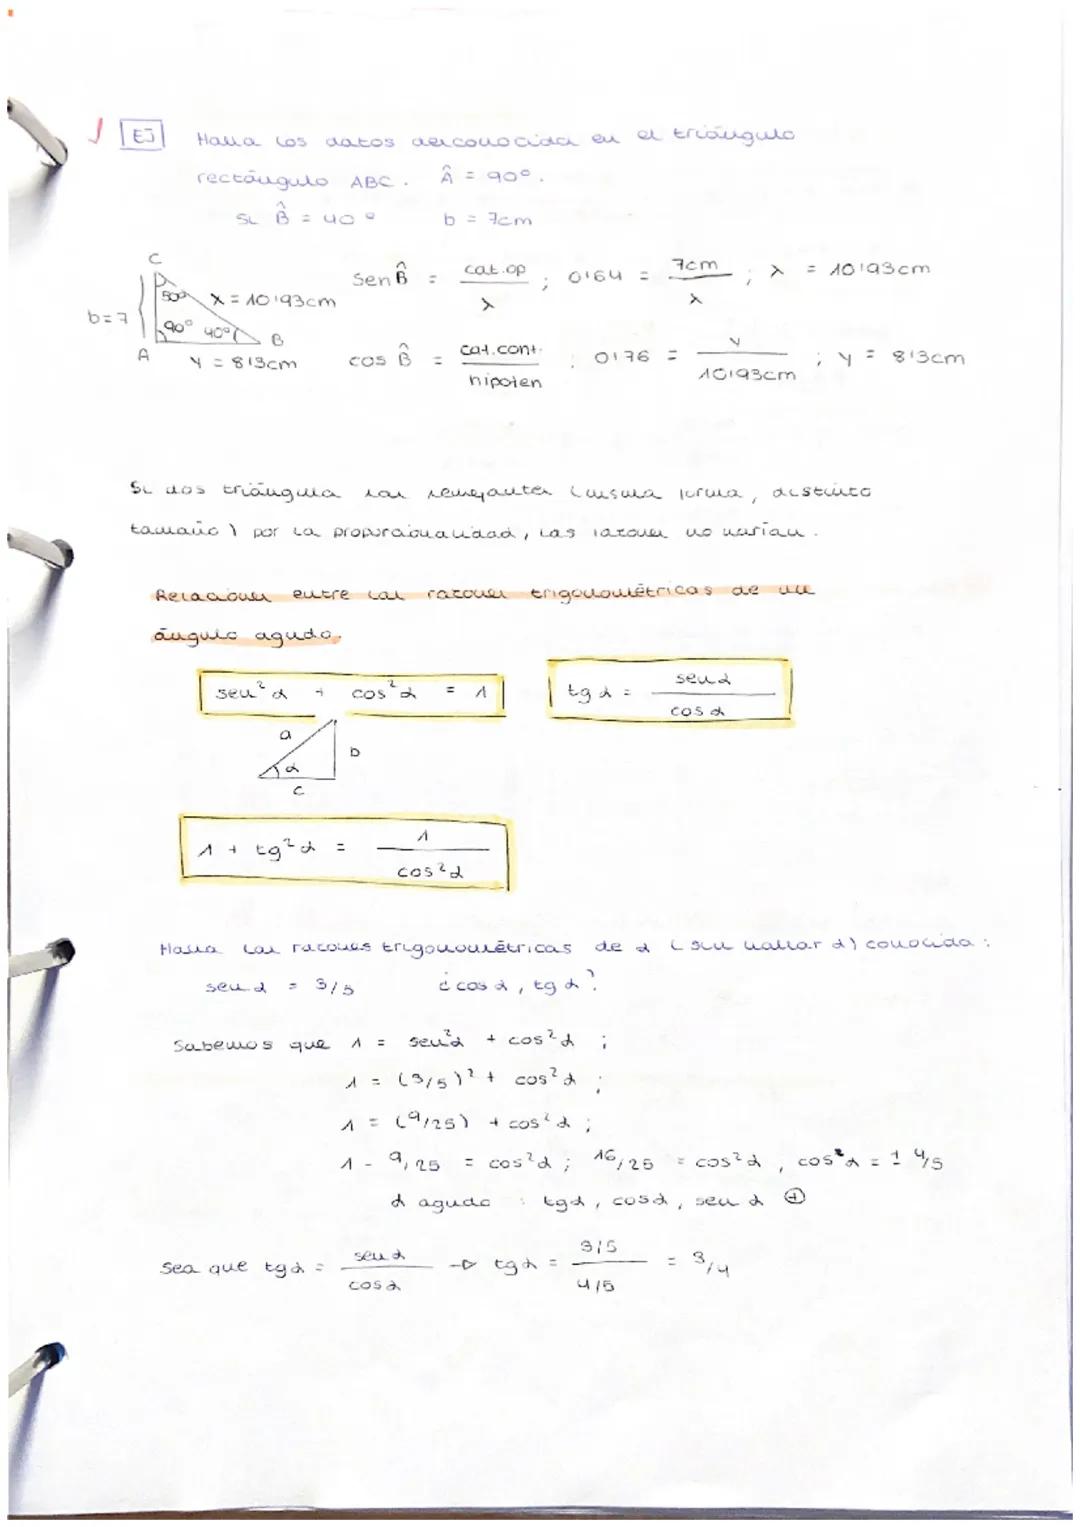 EJ Halla los datos desconocidos en el triángulo
rectángulo ABC. Â = 90º.
Si B̂ = 40º b = 7cm
C
50º x = 10'93cm
b=7
90º 40º B
A y = 8'3cm
Sen B̂ = cat.op / x ; 0'64 = 7cm / x ; x = 10'93cm
cos B̂ = cat.cont. / hipoten ; 0'76 = y / 10'93cm ; y = 8'3cm
Si dos triángulos son semejantes (misma forma, distinto
tamaño) por la proporcionalidad, las razones no varían.
Relaciones entre las razones trigonométricas de un
ángulo agudo.
sen²α + cos²α = 1
tg α = sen α / cos α
a
b
α
c
1 + tg²α = 1 / cos²α
Halla las razones trigonométricas de α (sin hallar α) conocida:
sen α = 3/5 ¿cos α, tg α?
Sabemos que 1 = sen²α + cos²α ;
1 = (3/5)² + cos²α ;
1 = (9/25) + cos²α ;
1 - 9/25 = cos²α ; 16/25 = cos²α , cos α = ± 4/5
α agudo : tgα, cosα, sen α ⊕
Sea que tgα = sen α / cos α → tgα = 3/5 / 4/5 = 3/4